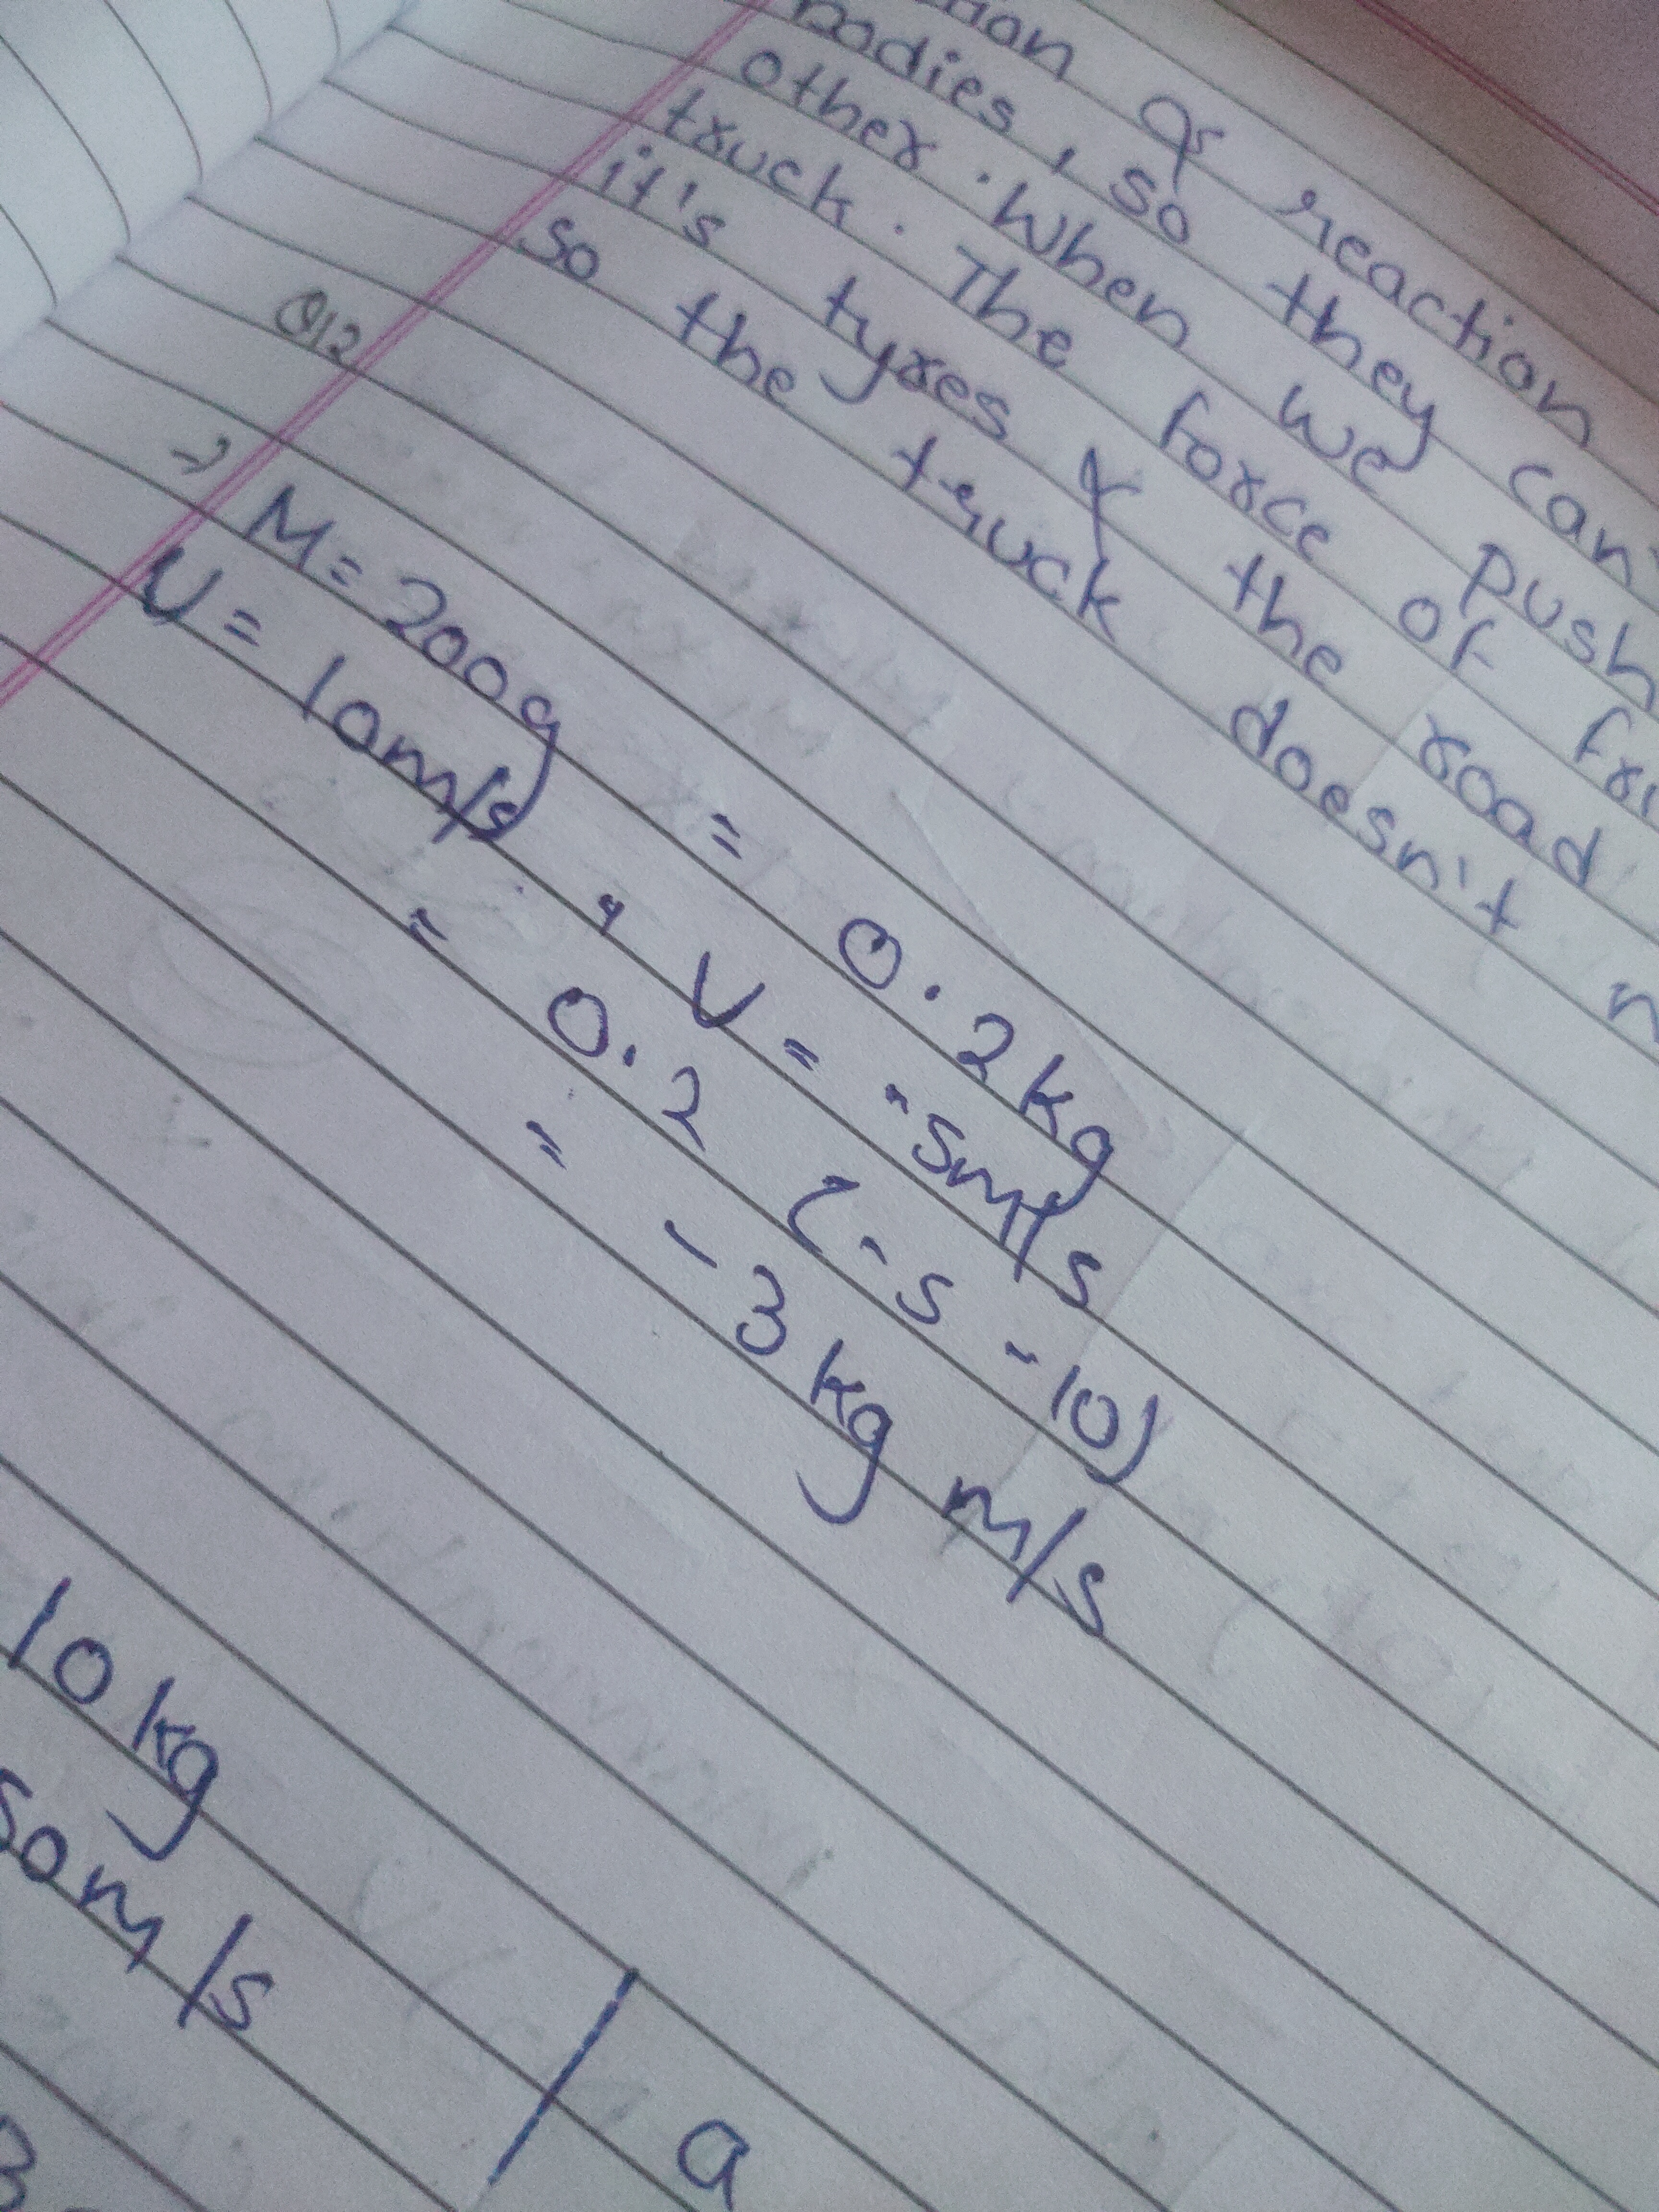 & reaction
bodies, so they can
other. When we push
truck. The force of
it's tyres & the road
so the truck doesn't
Q12
→ M = 200g = 0.2kg
U = 10m/s, V = -5m/s
= 0.2 (-5 -10)
= -3 kg m/s
10 kg
50 m/s
a